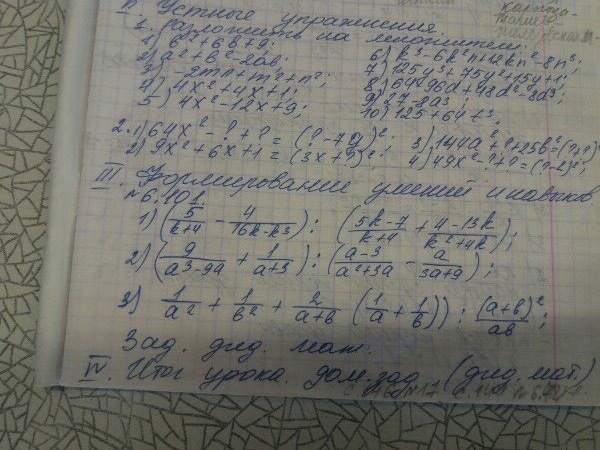 II. Устные упражнения.
1. Разложить на множители:
1) b² + 6b + 9;
2) a² + b² - 2ab;
3) -2mn + m² + n²;
4) 4x² + 4x + 1;
5) 4x² - 12x + 9;
6) k³ - 6k²n + 12kn² - 8n³;
7) 125y³ + 75y² + 15y + 1;
8) 64 - 96d + 48d² - 8d³;
9) 27 - 8a³;
10) 125 + 64t³.
2. 1) 64x² - ? + ? = (? - 7y)²;
2) 9x² + 6x + 1 = (3x + ?)²;
3) 144a² + ? + 25b² = (? + ?)²;
4) 49x² - ? + ? = (? - 2)²;
III. Формирование умений и навыков.
№ 6.101.
1) (5/(k+4) - 4/(16k-k³)) : ((5k-7)/(k+4) + (4-13k)/(k²+4k));
2) (9/(a³-9a) + 1/(a+3)) : ((a-3)/(a²+3a) - a/(3a+9));
3) 1/a² + 1/b² + 2/(a+b) (1/a + 1/b)) : (a+b)²/ab;
Зад. дид. мат.
IV. Итог урока. Дом. зад. (дид. мат)